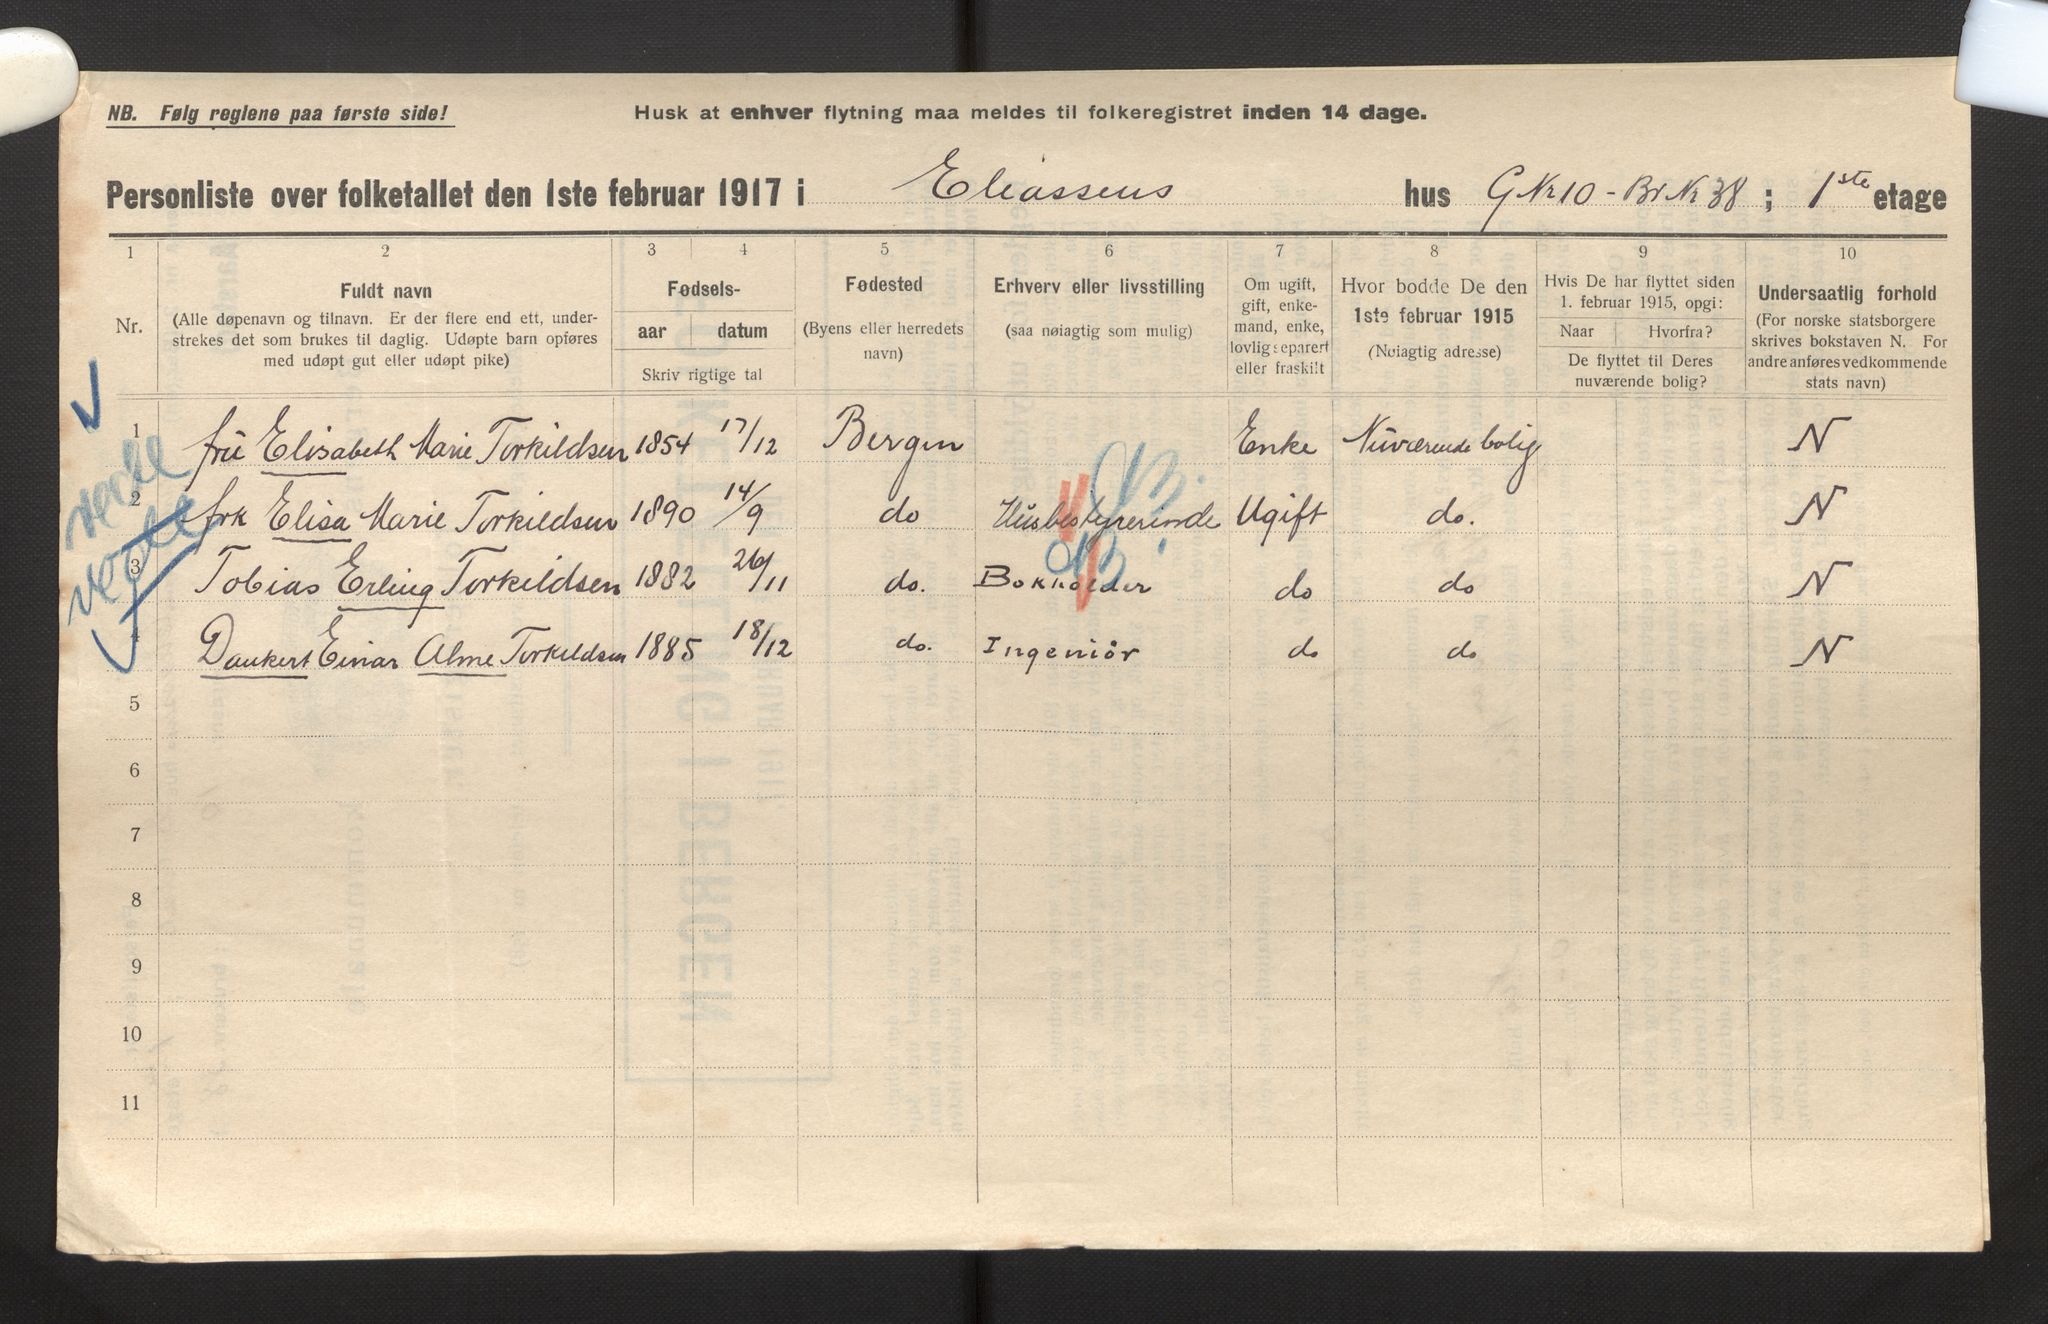 NB. Følg reglene paa første side!
Husk at enhver flytning maa meldes til folkeregistret inden 14 dage.
Personliste over folketallet den 1ste februar 1917 i Eliassens hus GNr 10 - Br Nr 38 ; 1ste etage
1 2 3 4 5 6 7 8 9 10
Nr.
Fuldt navn
(Alle døpenavn og tilnavn. Er der flere end ett, under-
strekes det som brukes til daglig. Udøpte barn opføres
med udøpt gut eller udøpt pike)
Fødsels-
aar datum
Skriv rigtige tal
Fødested
(Byens eller herredets
navn)
Erhverv eller livsstilling
(saa nøiagtig som mulig)
Om ugift,
gift, enke-
mand, enke,
lovlig separert
eller fraskilt
Hvor bodde De den
1ste februar 1915
(Nøiagtig adresse)
Hvis De har flyttet siden
1. februar 1915, opgi:
Naar Hvorfra?
De flyttet til Deres
nuværende bolig?
Undersaatlig forhold
(For norske statsborgere
skrives bokstaven N. For
andre anføres vedkommende
stats navn)
1 frü Elisabeth Marie Torkildsen 1854 17/12 Bergen Enke Nüværende bolig N
2 frk Elisa Marie Torkildsen 1890 14/9 do Hüsbestyrerinde Ugift do. N
3 Tobias Erling Torkildsen 1882 26/11 do. Bokholder do do N
4 Dankert Einar Alme Torkildsen 1885 18/12 do. Ingeniör do do N
5
6
7
8
9
10
11